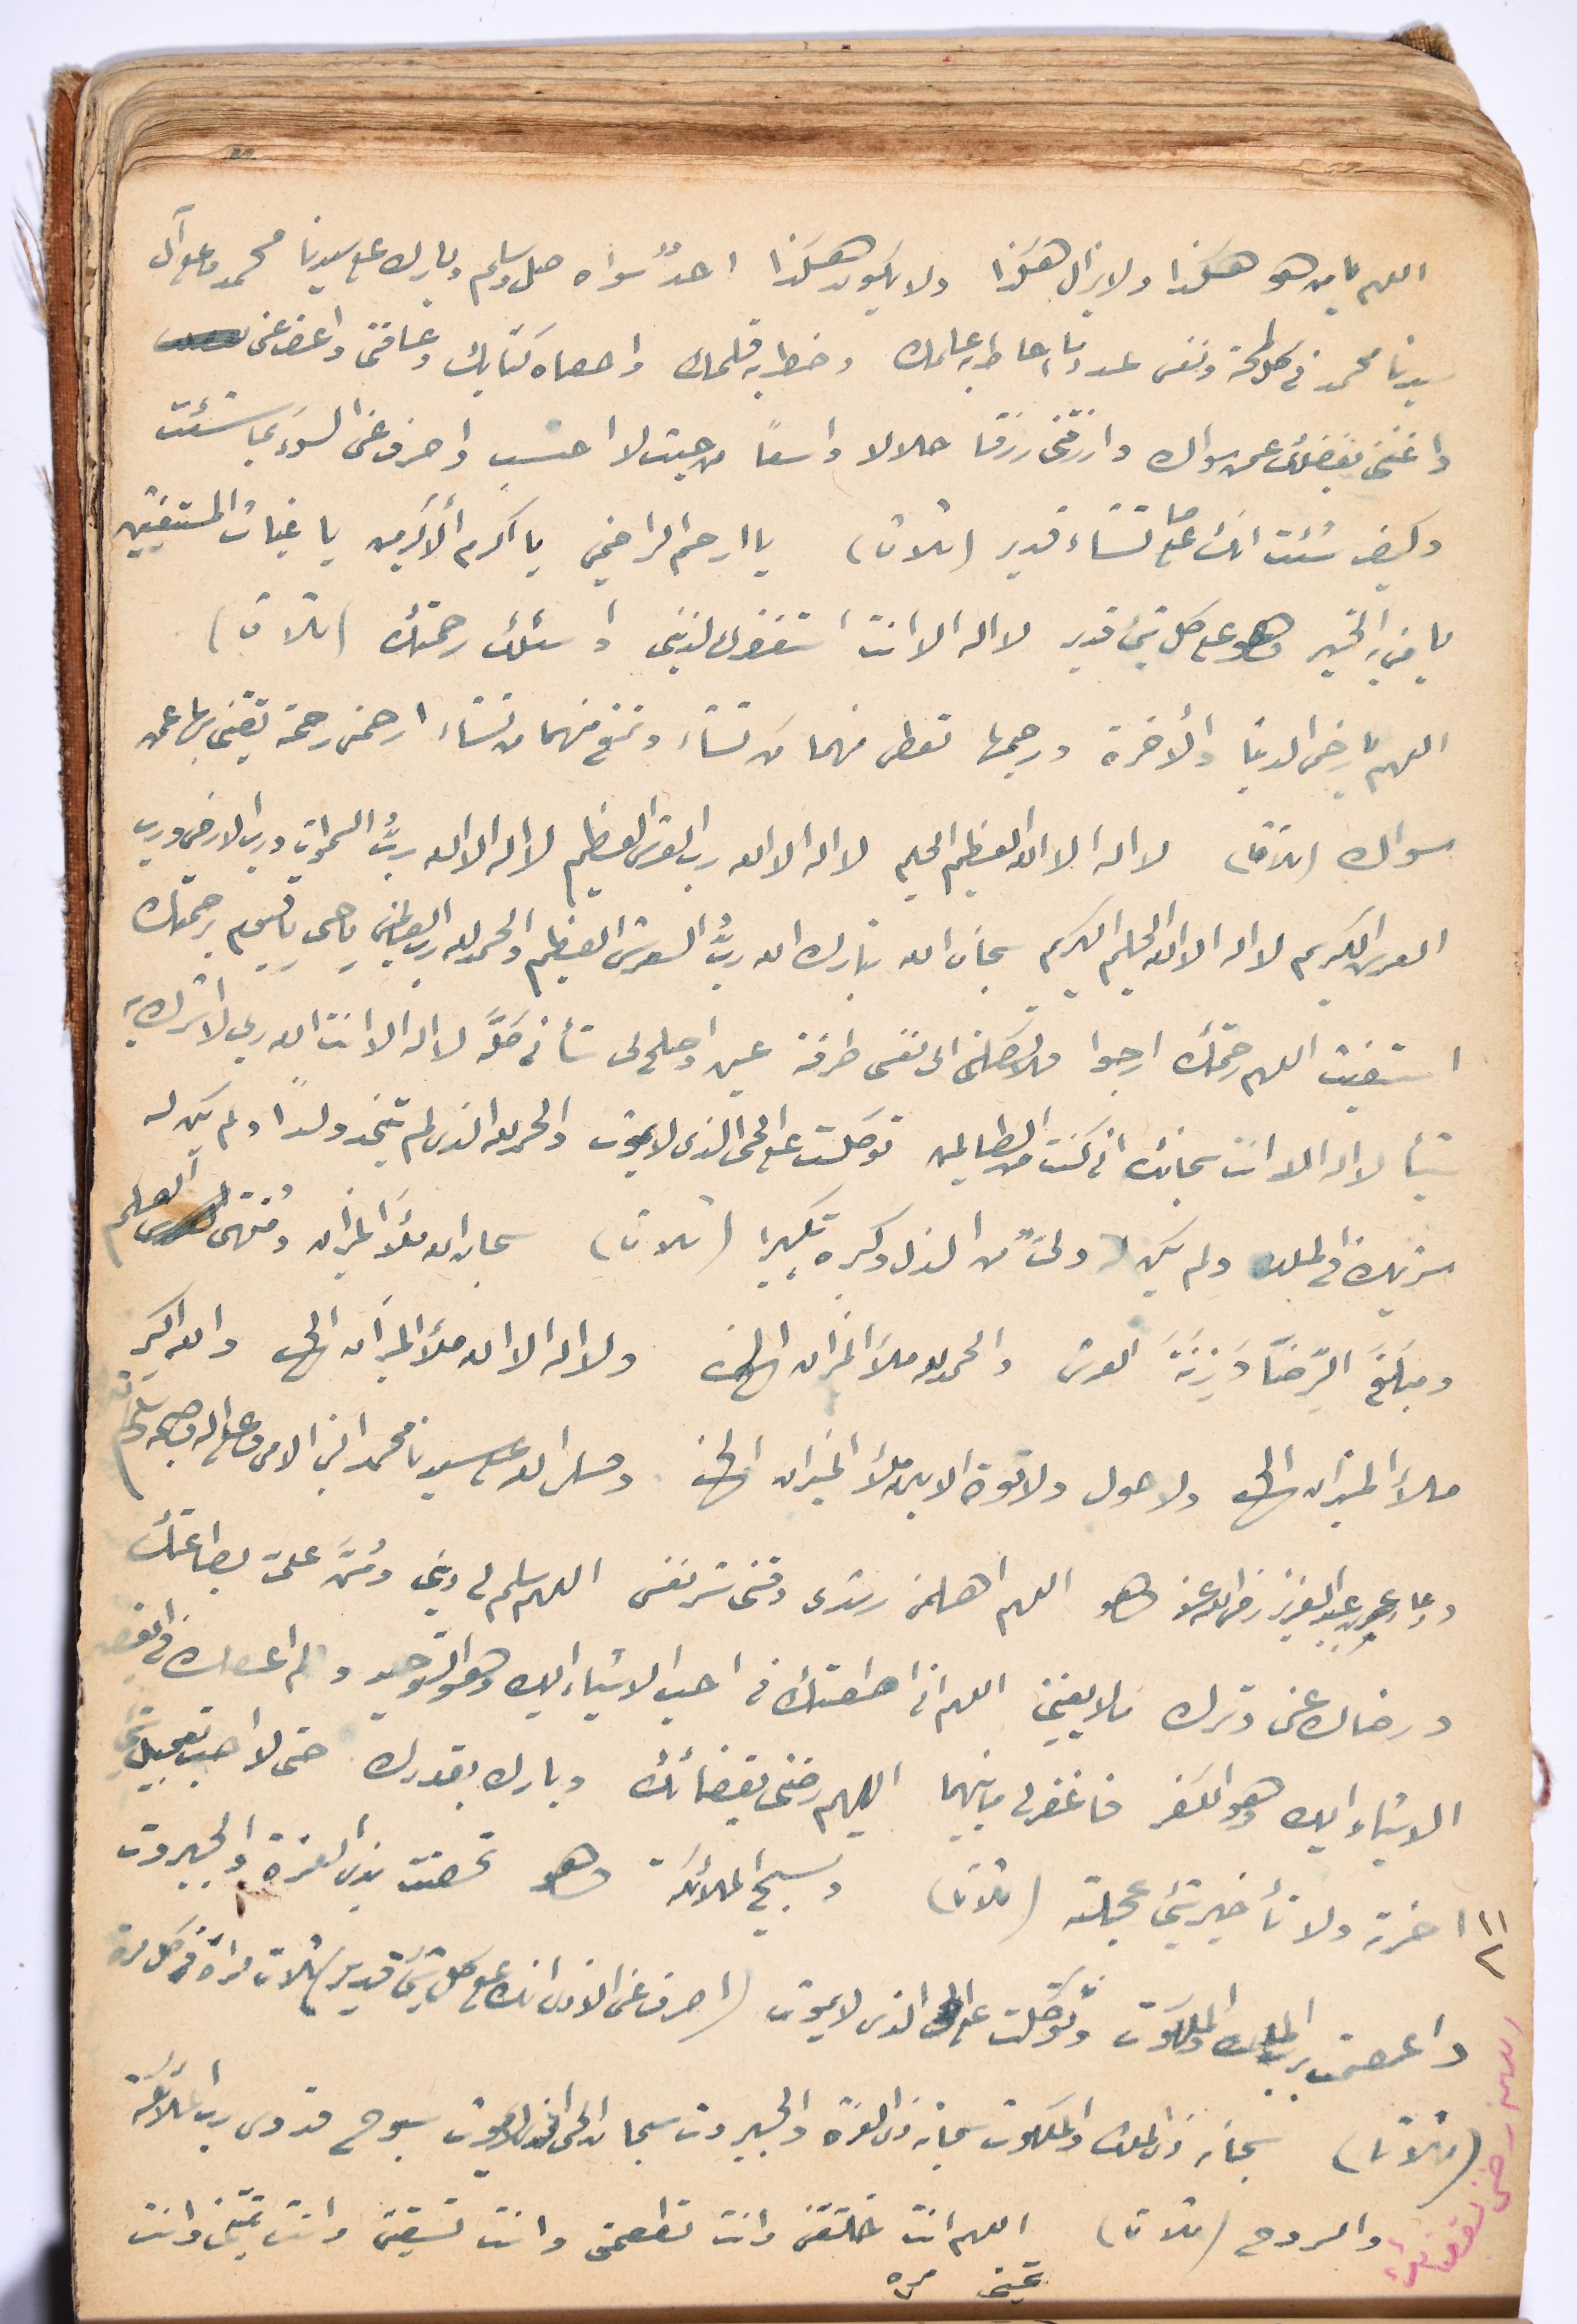 اللهم يا من هو هكذا ولا يزال هكذا ولا يكون هكذا احدٌ سواه صل وسلم وبارك على سيدنا محمد وعلى آل
سيدنا محمد فى كل لمحة ونفس عدد ما احاط به علمك وخط به قلمك واحصاه كتابك وعافنى واعف عنى
واغننى بفضلك عمن سواك وارزقنى رزقا حلالا واسعًا من حيث لا احتسب واصرف عنى السوء بما شئت
وكيف شئت انك على ما تشاء قدير (ثلاثا) يا ارحم الراحمين يا اكرم الأكرمين يا غياث المستغيثين
يا من بيده الخير وهو على كل شئ قدير لا اله الا انت استغفرك لذنبى واسئلك رحمتك (ثلاثا)
اللهم يا رحمن الدنيا والأخرة ورحيمها تعطى منهما من تشاء وتمنع منهما من تشاء ارحمنى رحمة تغنينى بها عمن
سواك (ثلاثا) لا اله الا الله العظيم الحليم لا اله الا الله رب العرش العظيم لا اله الا الله ربُّ السموات ورب الارض ورب
العرش الكريم لا اله الا الله الحليم الكريم سبحان الله تبارك الله ربُّ العرش العظيم والحمد لله رب العالمين يا حى يا قيوم برحمتك
استغيث اللهم رحمتك ارجوا فلا تكلنى الى نفسى طرفة عين واصلح لى شأنى كلَّه لا اله الا انت الله ربى لا اشرك به
شيئا لا اله الا انت سبحانك انى كنت من الظالمين توكلت على الحى الذى لا يموت والحمد لله الذى لم يتخذ ولدًا ولم يكن له
شريك فى الملك ولم يكن له ولىٌّ من الذل وكبره تكبيرا (ثلاثا) سبحان الله ملأ الميزان ومُنتهى العلم
ومبلَغَ الرِّضَا وَزِنَةَ العرش والحمد لله ملأ الميزان الخ ولا اله الا الله ملأ الميزان الخ والله اكبر
ملأ الميزان الخ ولا حول ولا قوة الا بالله ملأ الميزان الخ وصلى الله على سيدنا محمد النبى الامى وعلى اله وصحبه وسلم
ودعاء عمر بن عبد العزيز رضى الله عنه هو اللهم الهمنى رشدى وقنى شر نفسى اللهم سلم لى دينى ومُنَّ علىّ بطاعتك
ورضاك عنى وترك ما لا يعنينى اللهم انى اطعتك فى احب الاشياء اليك وهو التوحيد ولم اعصك فى ابغض
الاشياء اليك وهو الكفر فاغفر لى ما بينهما اللهم رضنى بقضائك وبارك بقدرك حتى لا احب تعجيل شئ
اخرته ولا تأخير شئ عجلته (ثلاثا) وتسبيح الملائكة وهو تحصنت بذى العزة والجبروت
واعتصمت برب الملك والملكوت وتوكلت على الحى الذى لا يموت (اصرف عنى الاذى انك على كل شئ قدير ثلاث مرات فى كل مرة
(ثلاثا) سبحان ذى الملك والملكوت سبحان ذى العزة والجبروت سبحان الحى الذى لا يموت سبوح قدوس رب الملائكة
والروح (ثلاثا) اللهم انت خلقتنى وانت تطعمنى وانت تسقينى وانت تميتنى وانت
تحيينى مره
١١
٢